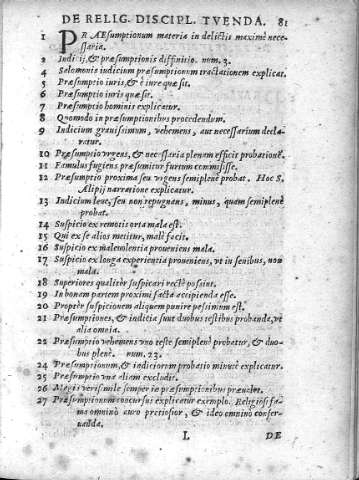 DE RELIG. DISCIPL. TVENDA. 81
1 PRAESumptionum materia in delictis maximè necessaria.
2 Inditij, & præsumptionis diffinitio. num. 3.
4 Salomonis iudicium præsumptionum tractationem explicat.
5 Præsumptio iuris, & è iure quæ sit.
6 Præsumptio iuris quæ sit.
7 Præsumptio hominis explicatur.
8 Quomodo in præsumptionibus procedendum.
9 Indicium grauissimum, vehemens, aut necessarium declaratur.
10 Præsumptio vrgens, & necessaria plenam efficit probationē.
11 Famulus fugiens præsumitur furtum commisisse.
12 Præsumptio proxima seu vrgens semiplenè probat. Hoc S.
Alipij narratione explicatur.
13 Indicium leue, seu non repugnans, minus, quam semiplenè
probat.
14 Suspicio ex remotis orta mala est.
15 Qui ex se alios metitur, malè facit.
16 Suspicio ex maleuolentia proueniens mala.
17 Suspicio ex longa experientia proueniens, vt in senibus, non
mala.
18 Superiores qualiter suspicari rectè possint.
19 In bonam partem proximi facta accipienda esse.
20 Propter suspicionem aliquem punire pessimum est.
21 Præsumptiones, & inditia sunt duobus testibus probanda, vt
alia omnia.
22 Præsumptio vehemens vno teste semiplenè probatur, & duobus
plenè. num. 23.
24 Præsumptionum, & indiciorum probatio minutè explicatur.
25 Præsumptio vna aliam excludit.
26 Magis verisimile semper in præsumptionibus præualet.
27 Præsumptionum concursus explicatur exemplo. Religiosi fama
omninò auro pretiosior, & ideo omninò conseruanda.
L DE